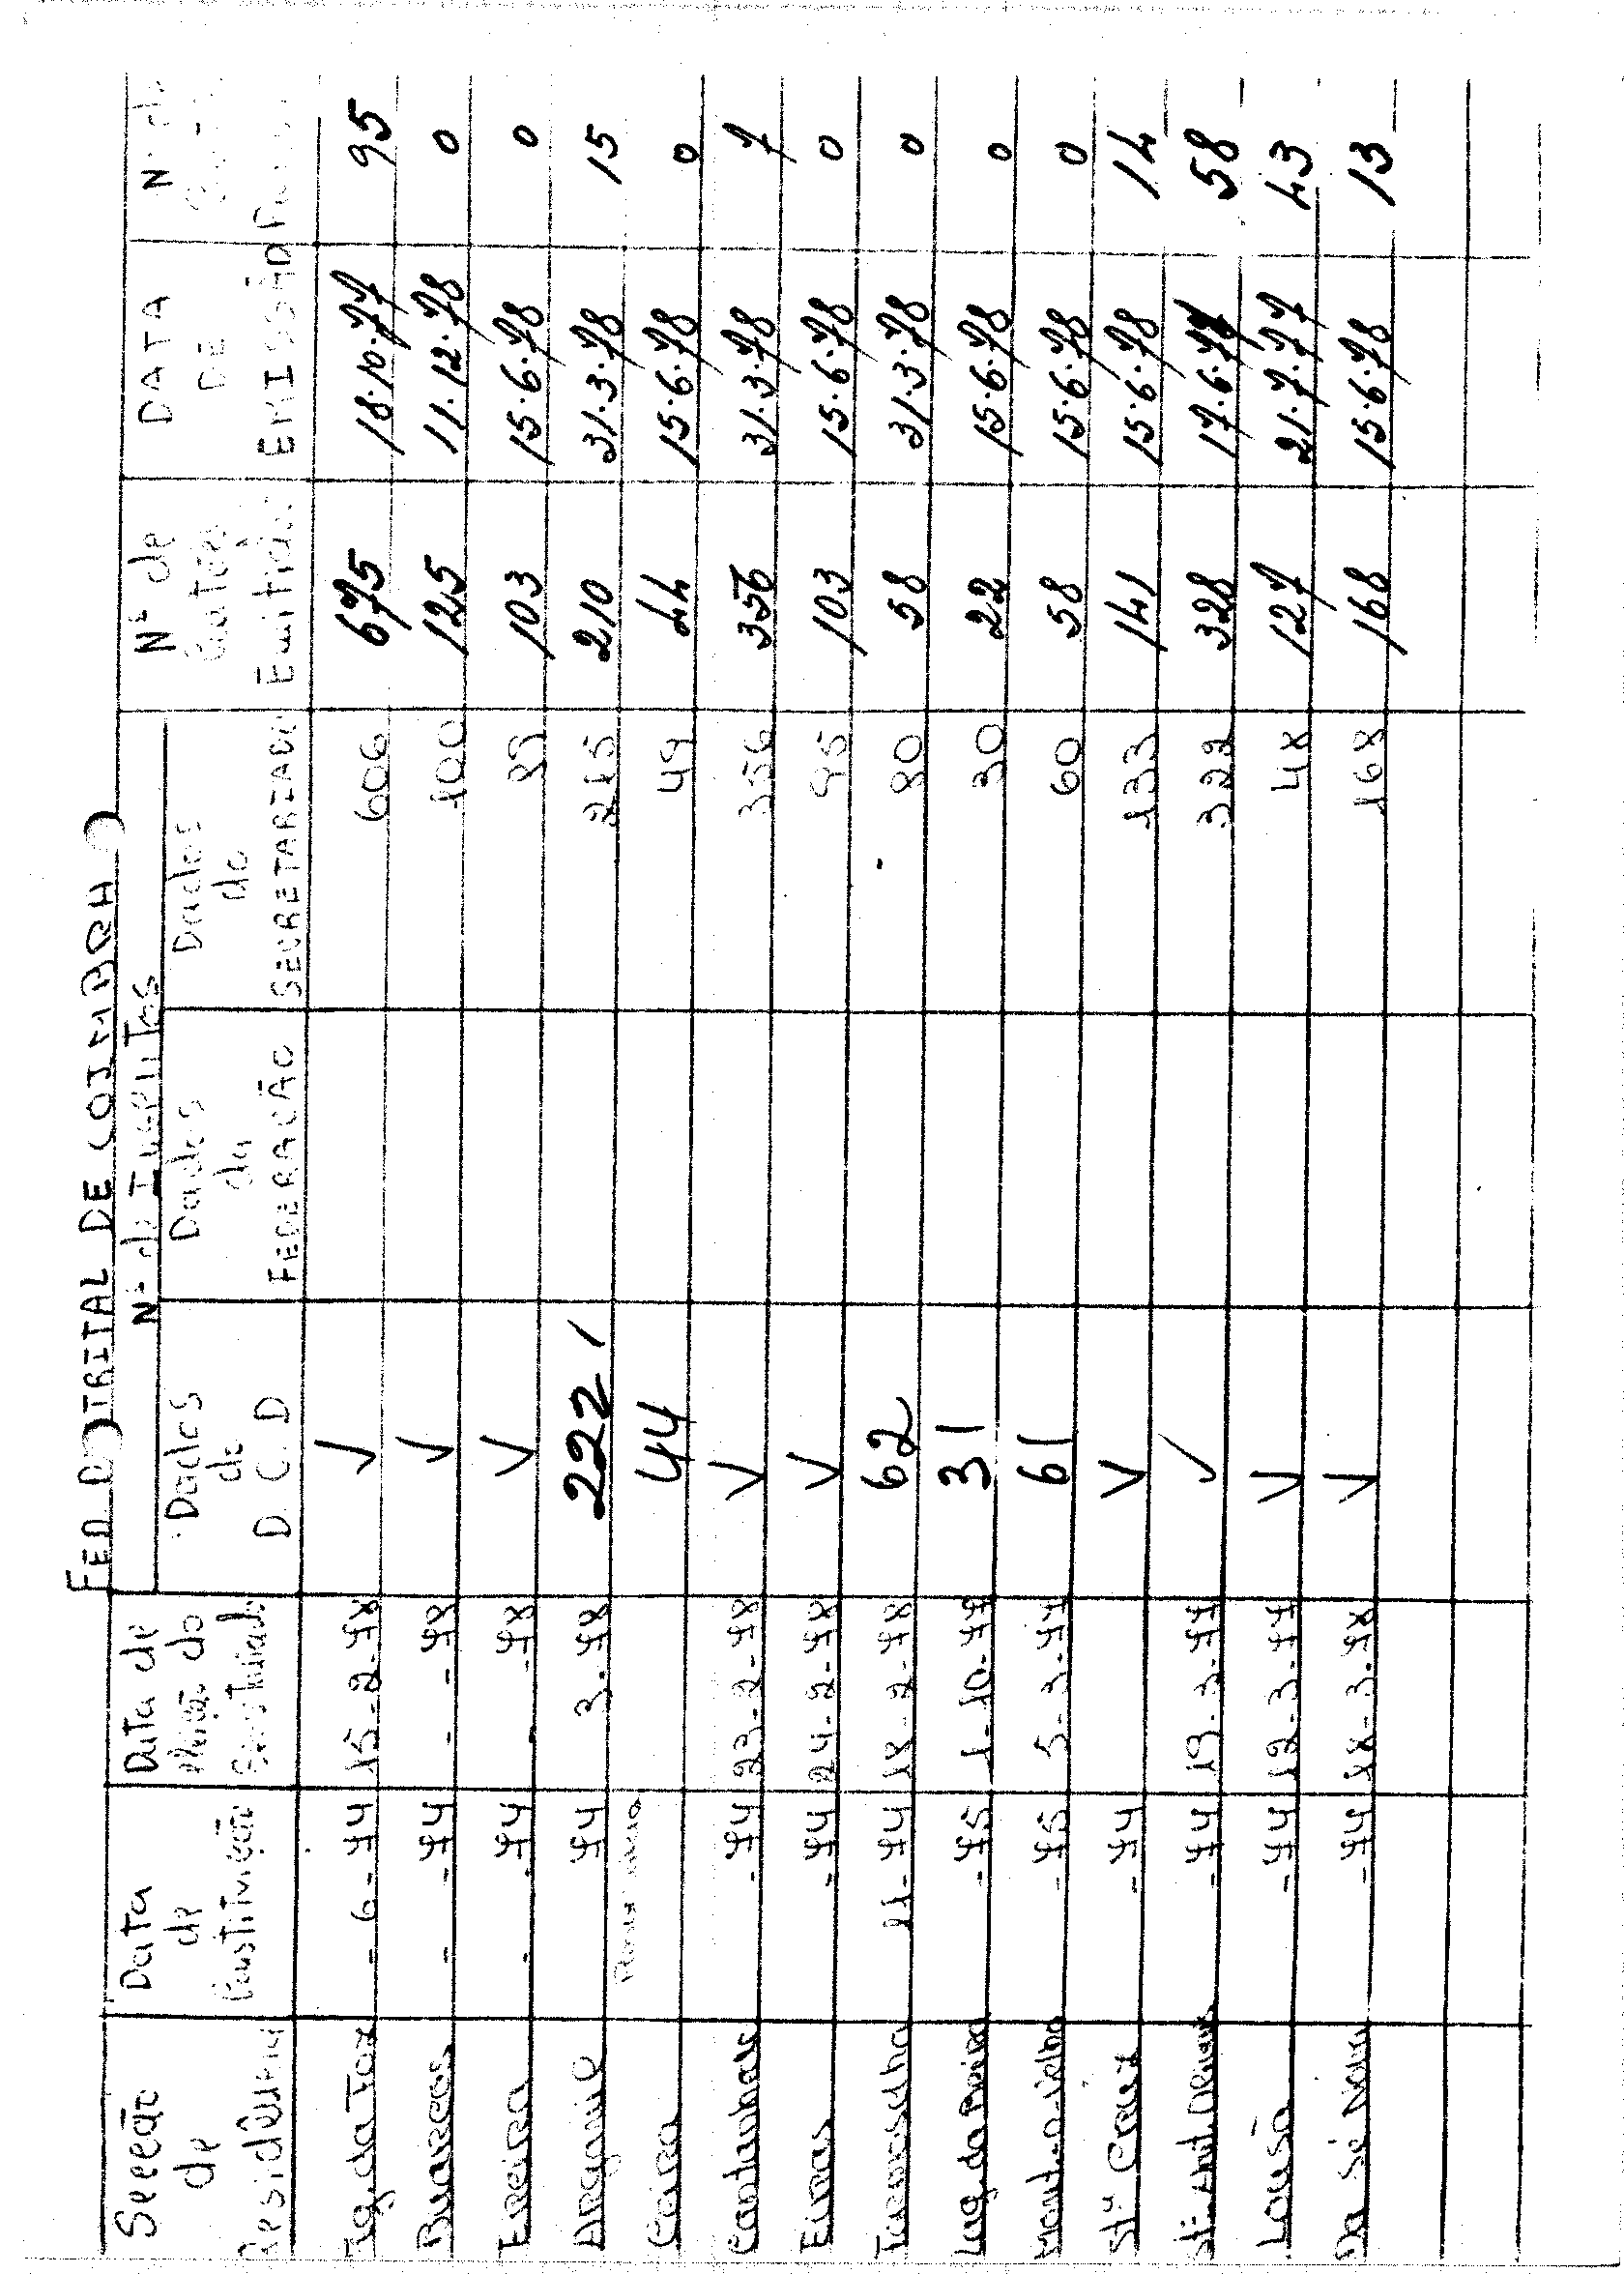 FED DISTRITAL DE COIMBRA
Secção de Residência | Data de Constituição | Data de eleição do Secretariado | Nº de Inscritos | Nº de Cartões Emitidos | DATA DE EMISSÃO | Nº de
Dados de D C D | Dados da FEDERAÇÃO | Dados do SECRETARIADO
Fig. da Foz - 6 - 74 15 - 2 - 78 V 606 675 18.10.77 95
Buarcos - - 74 - - 78 V 100 125 11.12.78 0
Ereira - 74 - - 78 V 85 103 15.6.78 0
Arganil 74 3 - 78 222 / 215 210 31.3.78 15
Ceira 44 49 44 15.6.78 0
Cantanhede - 74 23 - 2 - 78 V 356 356 31.3.78 7
Eiras - 74 24 - 2 - 78 V 95 103 15.6.78 0
11 - 74 18 - 2 - 78 62 80 58 31.3.78 0
Lag. da Beira - 75 1 - 10 - 77 31 30 22 15.6.78 0
Mont-o-Velho - 75 5 - 3 - 77 61 60 58 15.6.78 0
Stª Cruz - 74 V 133 141 15.6.78 14
- 74 19 - 3 - 77 V 322 328 17.6. 58
Lousã - 74 12 - 3 - 77 V 48 127 21.7.77 43
Da Sé Nova - 74 18 - 3 - 78 V 168 168 15.6.78 13